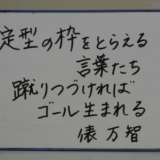 定型の枠をとらえる
言葉たち
蹴りつづければ
ゴール生まれる
俵万智